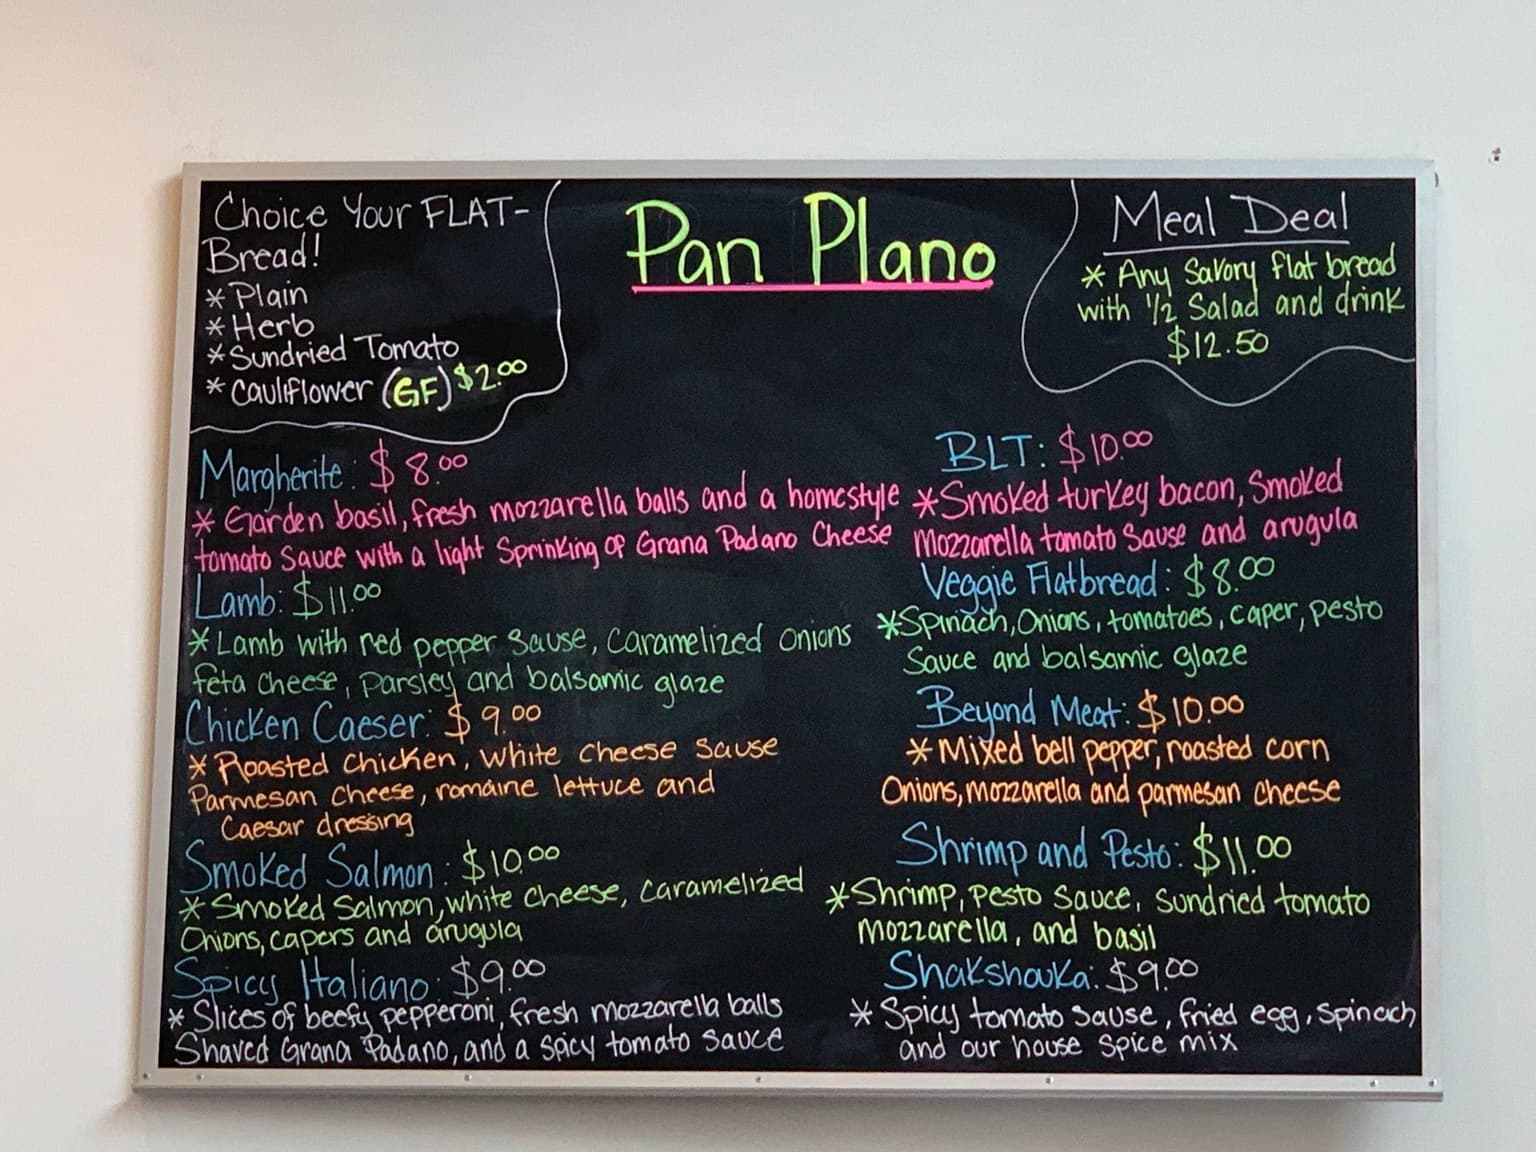 Choice Your FLAT-
Bread!
* Plain
* Herb
* Sundried Tomato
* Cauliflower (GF) $2.00
Pan Plano
Meal Deal
* Any Savory flat bread
with 1/2 Salad and drink
$12.50
Margherite: $8.00
* Garden basil, fresh mozzarella balls and a homestyle
tomato sauce with a light Sprinking of Grana Padano Cheese
Lamb: $11.00
* Lamb with red pepper sause, caramelized onions
feta cheese, parsley and balsamic glaze
Chicken Caeser: $9.00
* Roasted chicken, white cheese sause
Parmesan cheese, romaine lettuce and
Caesar dressing
Smoked Salmon: $10.00
* Smoked salmon, white cheese, caramelized
Onions, capers and arugula
Spicy Italiano: $9.00
* Slices of beefy pepperoni, fresh mozzarella balls
Shaved Grana Padano, and a spicy tomato sauce
BLT: $10.00
* Smoked turkey bacon, Smoked
Mozzarella tomato Sause and arugula
Veggie Flatbread: $8.00
* Spinach, Onions, tomatoes, caper, pesto
Sauce and balsamic glaze
Beyond Meat: $10.00
* Mixed bell pepper, roasted corn
Onions, mozzarella and parmesan cheese
Shrimp and Pesto: $11.00
* Shrimp, pesto sauce, sundried tomato
mozzarella, and basil
Shakshouka: $9.00
* Spicy tomato sause, fried egg, spinach
and our house spice mix